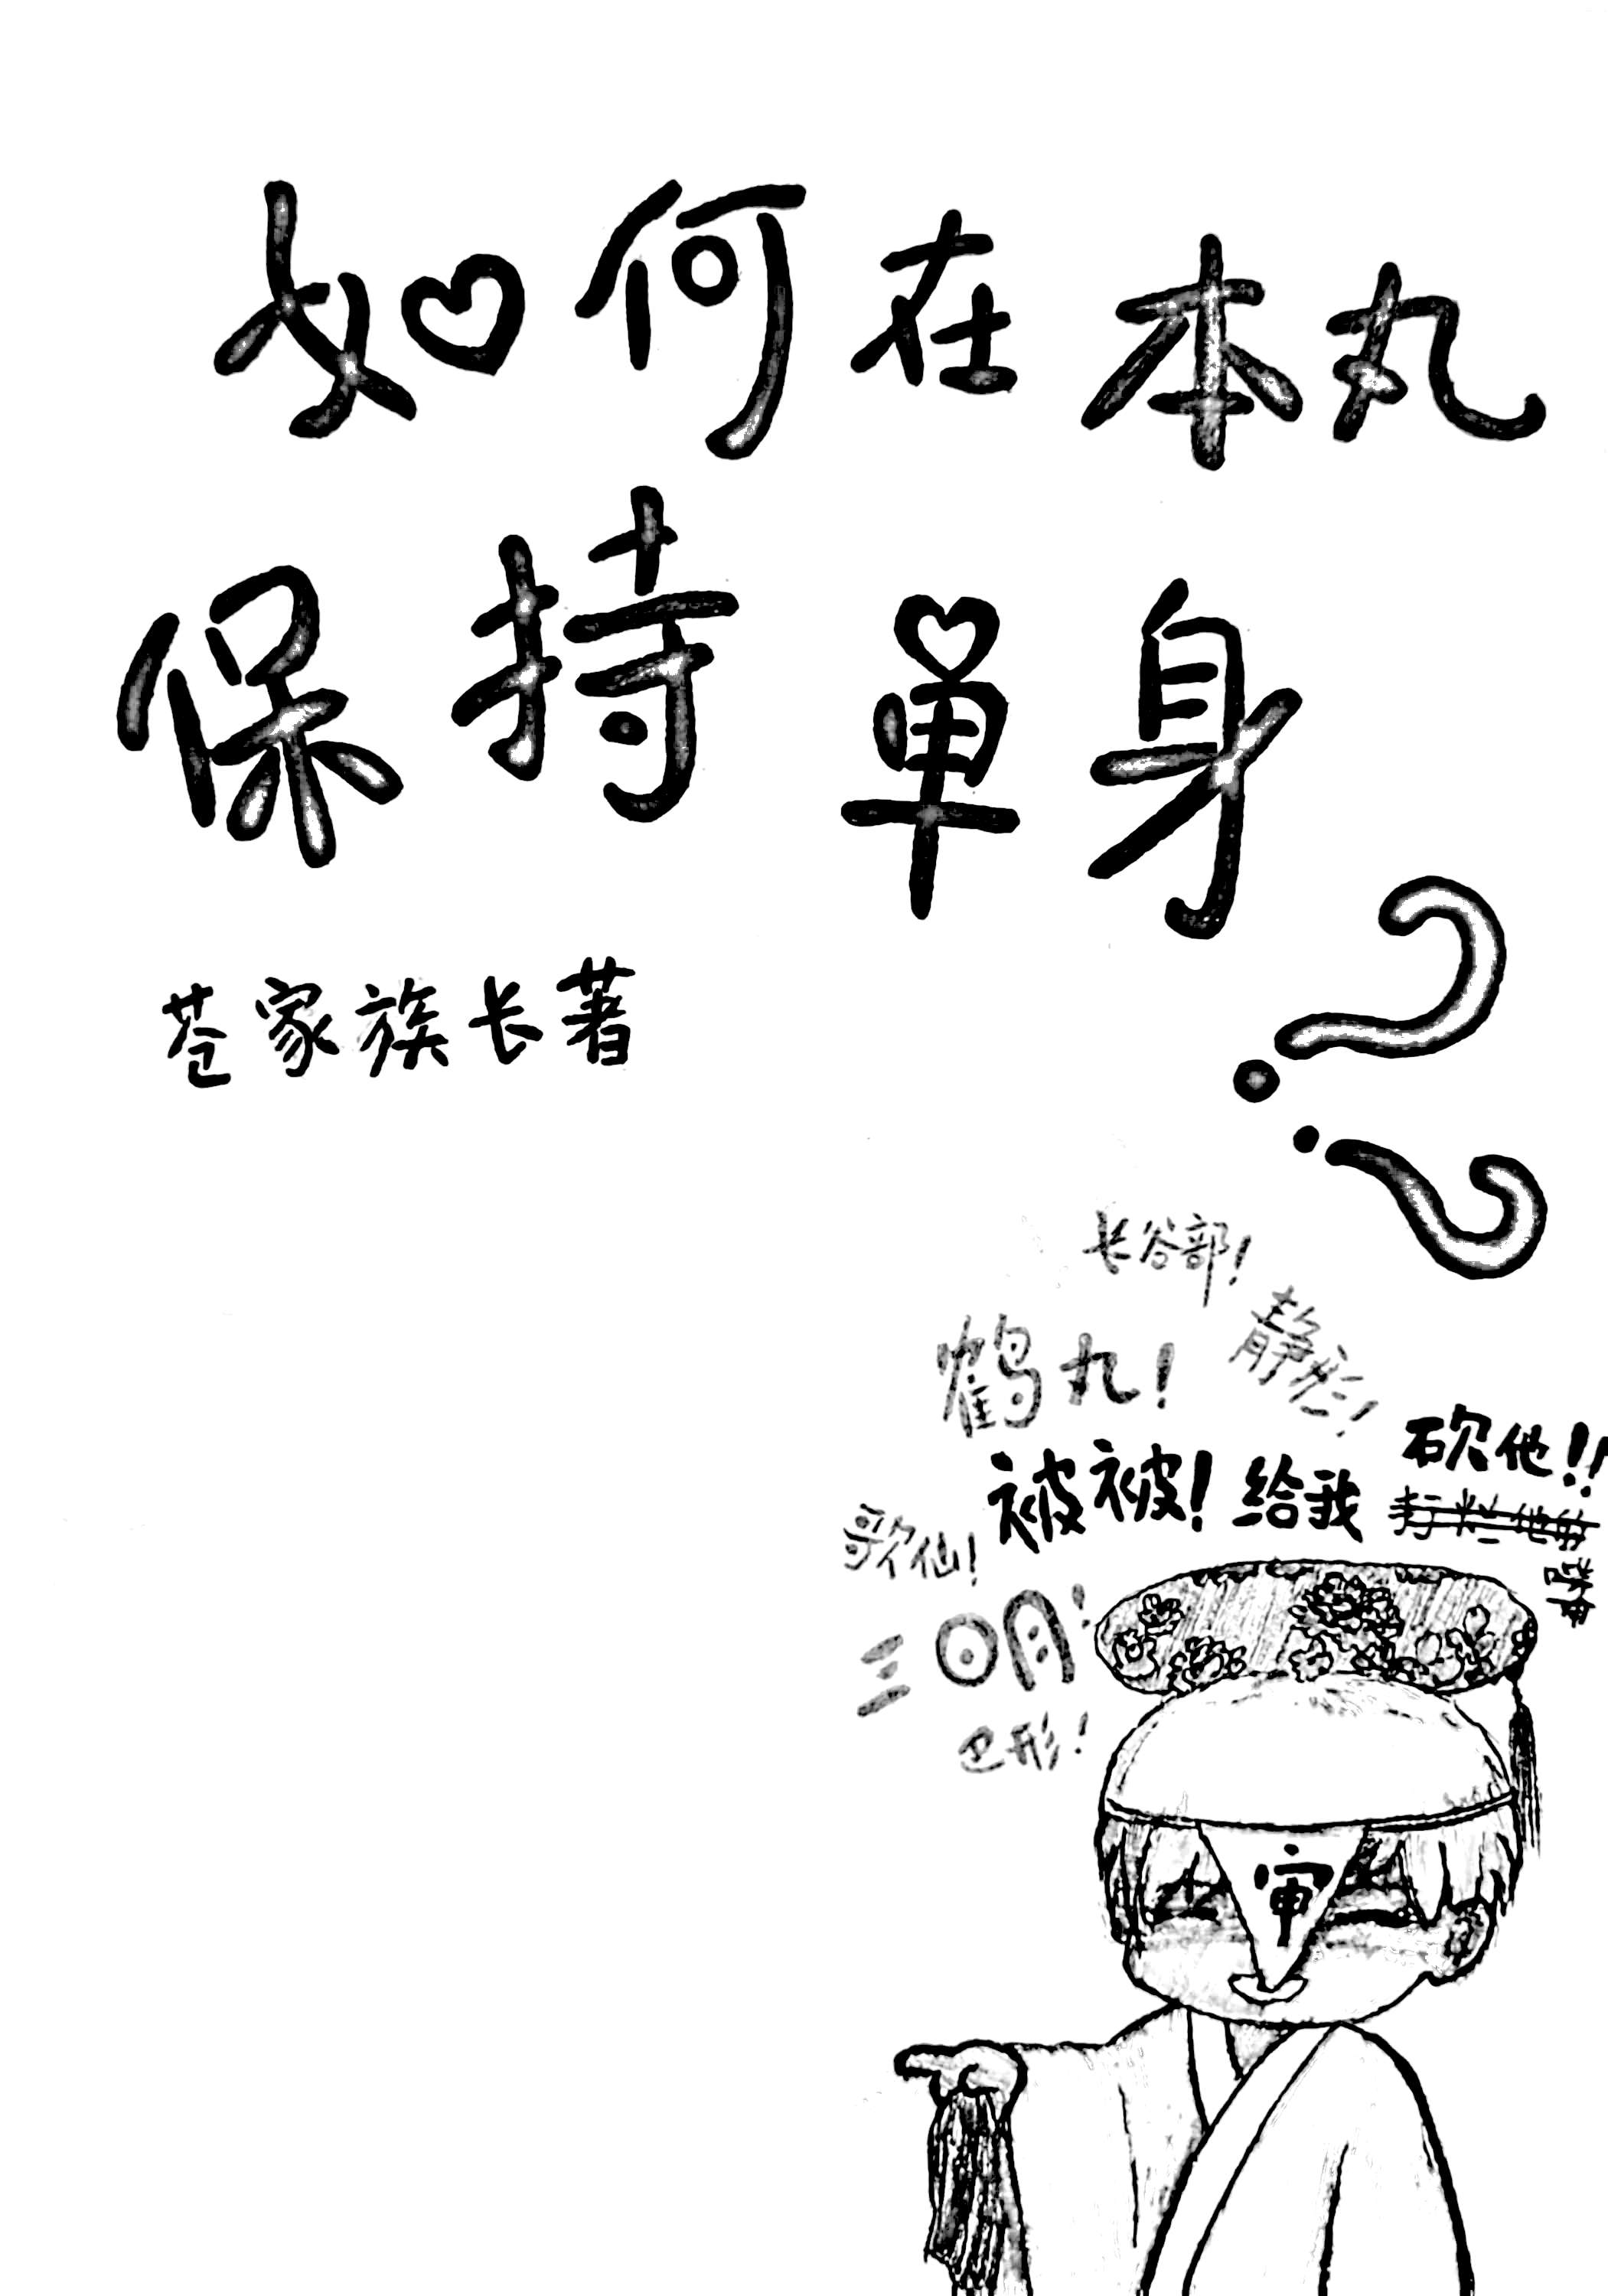 如何在本丸
保持单身
??
苍家族长著
长谷部!
鹤丸!
静形!
被被!给我
砍他!!
打烂他的
嘴
歌仙!
三日月!
巴形!
审